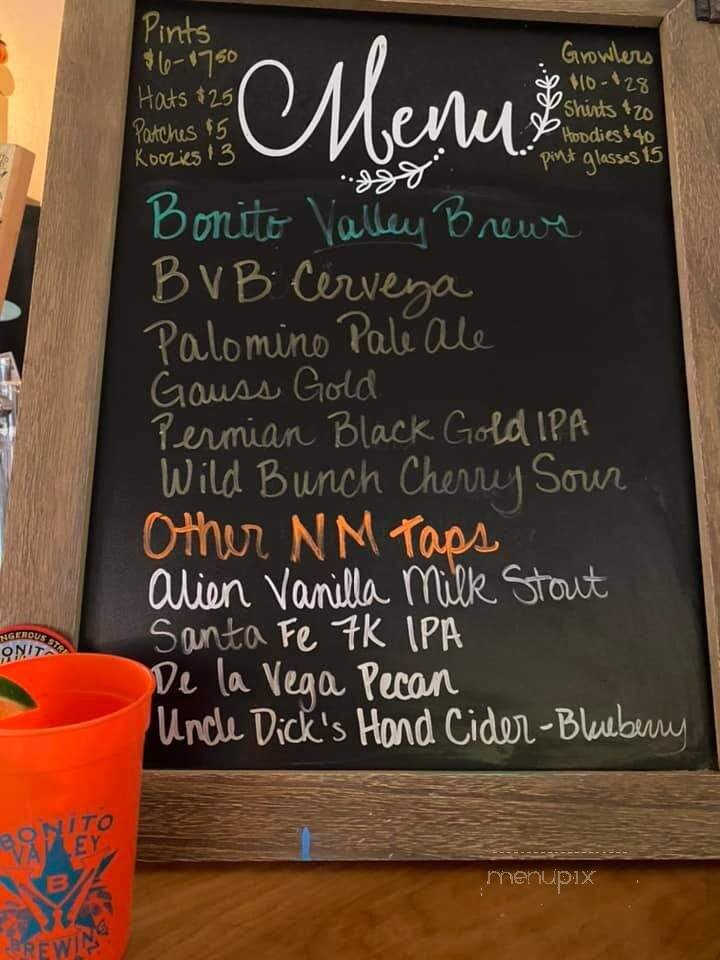 Pints
$6-$7.50
Hats $25
Patches $5
Koozies $3
Menu
Growlers
$10-$28
Shirts $20
Hoodies $40
pint glasses $5
Bonito Valley Brews
BVB Cerveza
Palomino Pale Ale
Gauss Gold
Permian Black Gold IPA
Wild Bunch Cherry Sour
Other NM Taps
Alien Vanilla Milk Stout
Santa Fe 7K IPA
De la Vega Pecan
Uncle Dick's Hard Cider-Blueberry
BONITO
VALLEY
B
BREWING
menupix